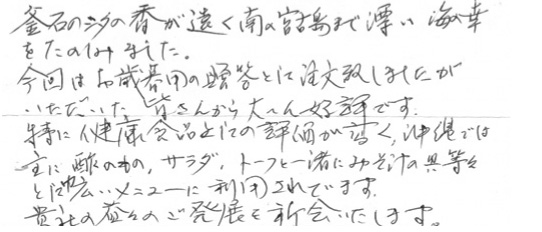 釜石の汐の香が遠く南の宮古島まで漂い海の幸
をたのしみました。
今回はお歳暮用の贈答として注文致しましたが
いただいた皆さんから大へん好評です。
特に健康食品としての評価が高く、沖縄では
主に酢のもの、サラダ、トーフと一緒にみそ汁の具等々
と幅広いメニューに利用されています。
貴社の益々のご発展を祈念いたします。